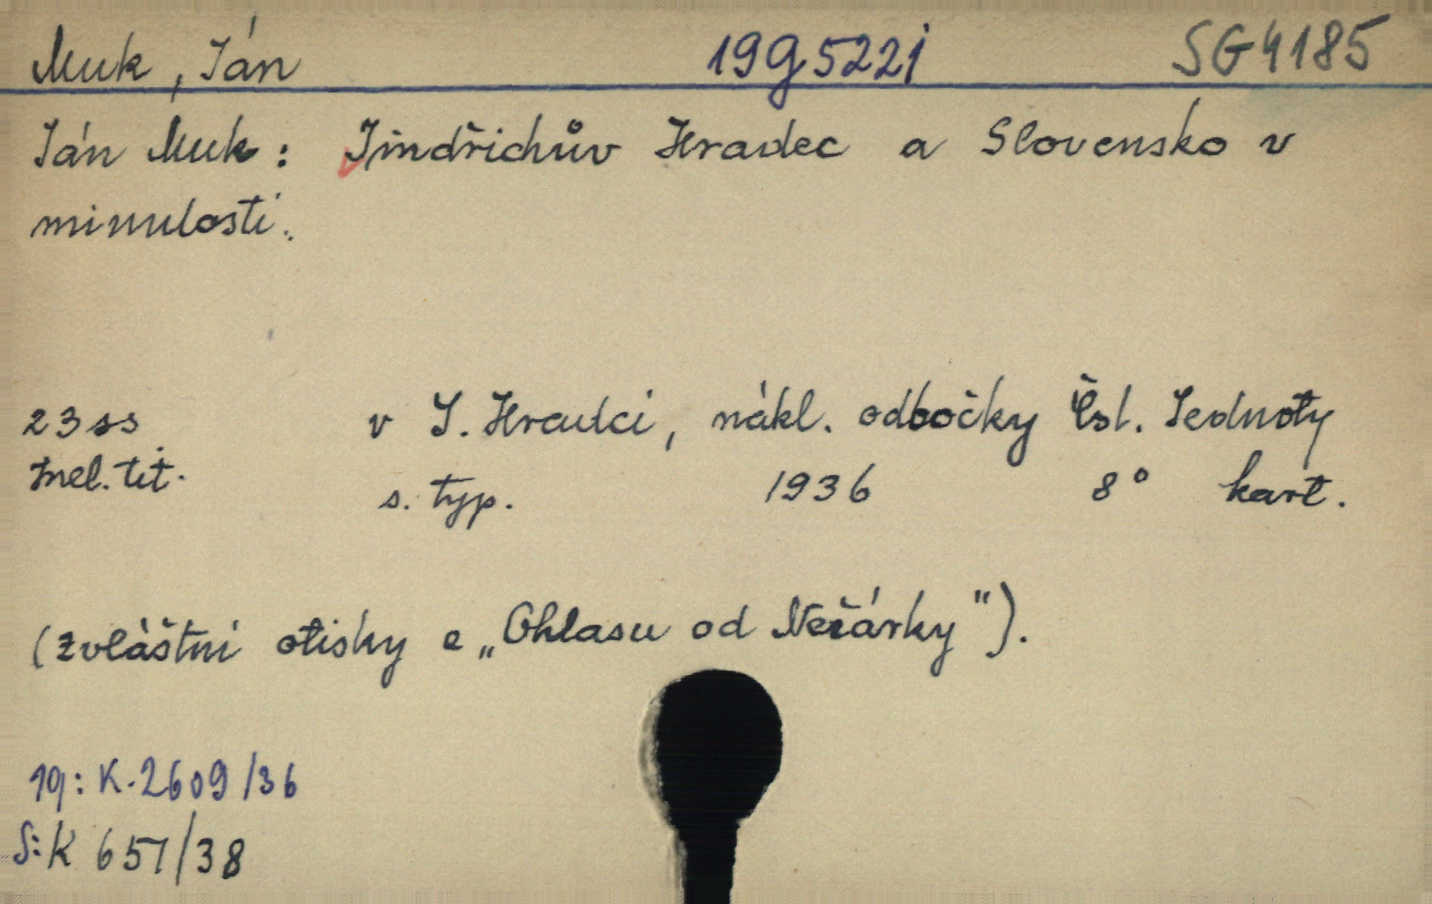 Muk, Ján 19g5221 SG4185
Ján Muk: Jindřichův Hradec a Slovensko v
minulosti.
23 ss v J. Hradci, nákl. odbočky Čsl. Jednoty
tit. s. typ. 1936 8° kart.
(zvláštní otisky z „Ohlasu od Nežárky").
19: K.2609/36
S: K 651/38